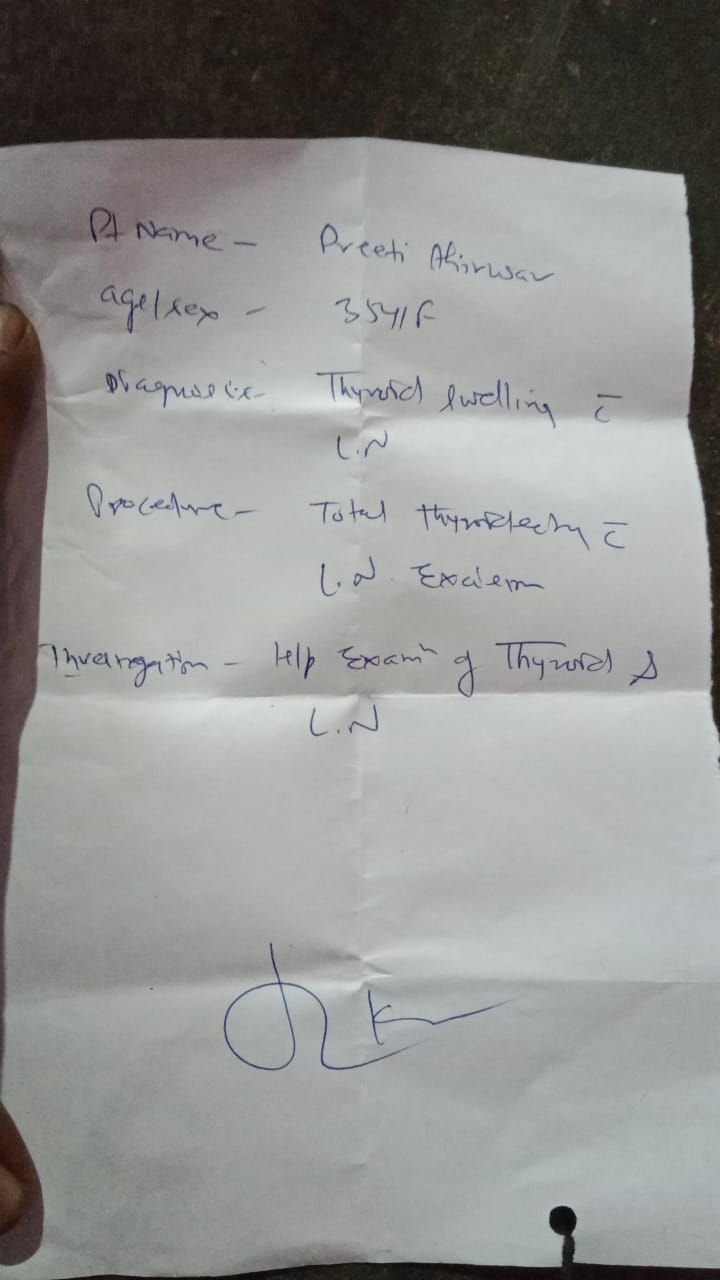 Pt Name - Preeti Ahirwar
age/sex - 35y/F
Diagnosis - Thyroid Swelling c̄
L.N
Procedure - Total thyroidectomy c̄
L.N. Excision
Investigation - H/p Exam^n of Thyroid &
L.N